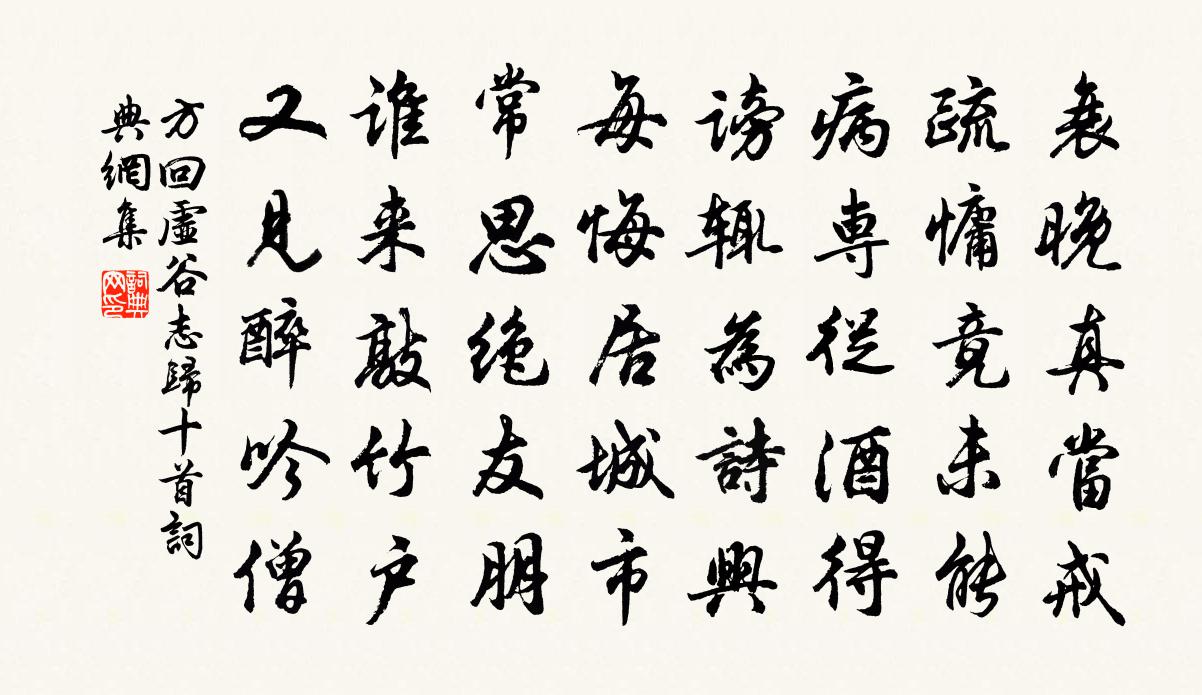 衰晚真當戒
疏慵竟未能
病専從酒得
謗輒為詩興
每悔居城市
常思绝友朋
谁来敲竹户
又見醉吟僧
方回虛谷志歸十首詞
典網集
詞典網印